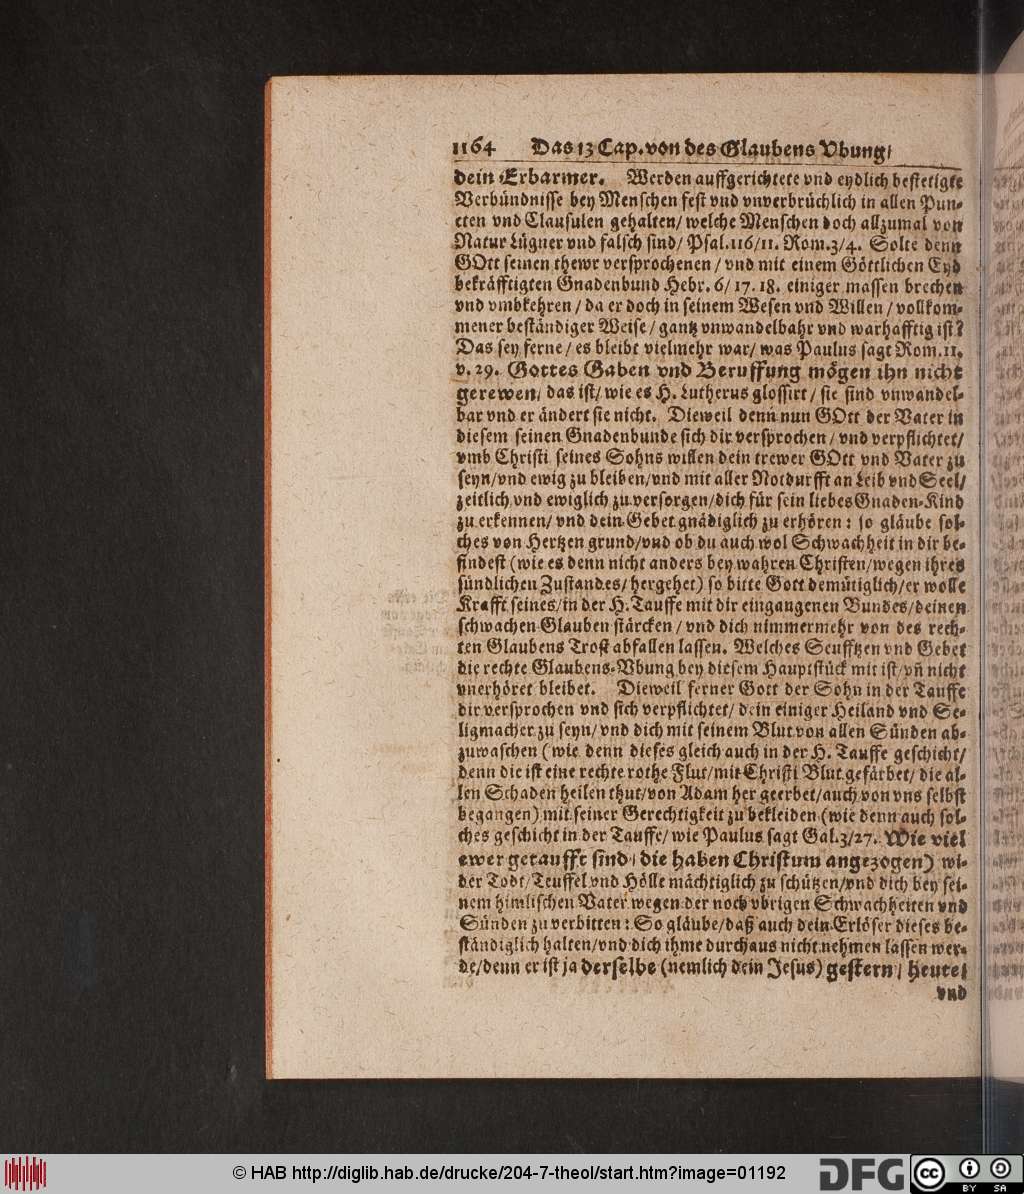 1164 Das 13 Cap. von des Glaubens Vbung/
dein Erbarmer. Werden auffgerichtete vnd eydlich bestetigte
Verbündnisse bey Menschen fest vnd vnverbrüchlich in allen Pun-
cten vnd Clausulen gehalten/ welche Menschen doch allzumal von
Natur Lügner vnd falsch sind/ Psal. 116/11. Rom. 3/4. Solte denn
GOtt seinen thewr versprochenen / vnd mit einem Göttlichen Eyd
bekräfftigten Gnadenbund Hebr. 6/ 17. 18. einiger massen brechen
vnd vmbkehren / da er doch in seinem Wesen vnd Willen / vollkom-
mener beständiger Weise / gantz vnwandelbahr vnd warhafftig ist?
Das sey ferne / es bleibt vielmehr war/ was Paulus sagt Rom. 11.
v. 29. Gottes Gaben vnd Beruffung mögen ihn nicht
gerewen/ das ist/ wie es H. Lutherus glossirt / sie sind vnwandel-
bar vnd er ändert sie nicht. Dieweil denn nun GOtt der Vater in
diesem seinen Gnadenbunde sich dir versprochen / vnd verpflichtet/
vmb Christi seines Sohns willen dein trewer GOtt vnd Vater zu
seyn/vnd ewig zu bleiben/vnd mit aller Notdurfft an Leib vnd Seel/
zeitlich vnd ewiglich zu versorgen/dich für sein liebes Gnaden-Kind
zu erkennen/ vnd dein Gebet gnädiglich zu erhören : so gläube sol-
ches von Hertzen grund/vnd ob du auch wol Schwachheit in dir be-
findest (wie es denn nicht anders bey wahren Christen/wegen ihres
sündlichen Zustandes/ hergehet) so bitte Gott demütiglich/er wolle
Krafft seines/in der H. Tauffe mit dir eingangenen Bundes/deinen
schwachen Glauben stärcken / vnd dich nimmermehr von des rech-
ten Glaubens Trost abfallen lassen. Welches Seufftzen vnd Gebet
die rechte Glaubens-Vbung bey diesem Hauptstück mit ist/vñ nicht
vnerhöret bleibet. Dieweil ferner Gott der Sohn in der Tauffe
dir versprochen vnd sich verpflichtet/ dein einiger Heiland vnd Se-
ligmacher zu seyn/ vnd dich mit seinem Blut von allen Sünden ab-
zuwaschen (wie denn dieses gleich auch in der H. Tauffe geschicht/
denn die ist eine rechte rothe Flut/mit Christi Blut gefärbet/ die al-
len Schaden heilen thut/von Adam her geerbet/auch von vns selbst
begangen) mit seiner Gerechtigkeit zu bekleiden (wie denn auch sol-
ches geschicht in der Tauffe/ wie Paulus sagt Gal. 3/27. Wie viel
ewer getaufft sind/ die haben Christum angezogen) wi-
der Todt/Teuffel vnd Hölle mächtiglich zu schützen/vnd dich bey sei-
nem himlischen Vater wegen der noch vbrigen Schwachheiten vnd
Sünden zu verbitten : So gläube/daß auch dein Erlöser dieses be-
ständiglich halten/vnd dich ihme durchaus nicht nehmen lassen wer-
de/denn er ist ja derselbe (nemlich dein Jesus) gestern/ heute/
vnd
© HAB http://diglib.hab.de/drucke/204-7-theol/start.htm?image=01192
DFG
cc
BY SA